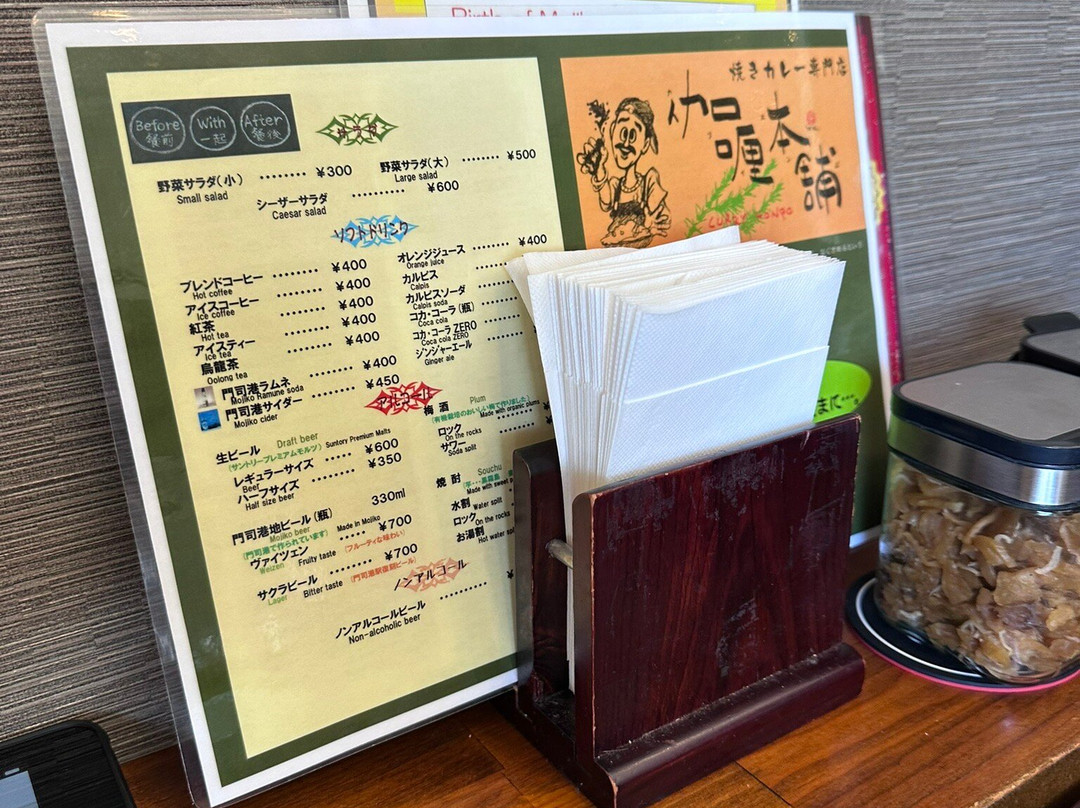 Before 餐前
With 一起
After 餐後
サラダ
野菜サラダ(小) ········ ¥300
Small salad
野菜サラダ(大) ········ ¥500
Large salad
シーザーサラダ ·········· ¥600
Caesar salad
ソフトドリンク
ブレンドコーヒー ········ ¥400
Hot coffee
アイスコーヒー ········ ¥400
Ice coffee
紅茶 ········ ¥400
Hot tea
アイスティー ········ ¥400
Ice tea
烏龍茶 ········ ¥400
Oolong tea
門司港ラムネ ········ ¥400
Mojiko Ramune soda
門司港サイダー ········ ¥450
Mojiko cider
オレンジジュース ········ ¥400
Orange juice
カルピス
Calpis
カルピスソーダ
Calpis soda
コカ・コーラ(瓶)
Coca cola
コカ・コーラ ZERO
Coca cola ZERO
ジンジャーエール
Ginger ale
アルコール
生ビール Draft beer
(サントリープレミアムモルツ) Suntory Premium Malts
レギュラーサイズ ····· ¥600
Beer
ハーフサイズ ····· ¥350
Half size beer
330ml
門司港地ビール(瓶)
Mojiko beer Made in Mojiko
(門司港で作られています)
ヴァイツェン ····· ¥700
Weizen Fruity taste (フルーティな味わい)
サクラビール ········ ¥700
Lager Bitter taste (門司港駅復刻ビール)
梅酒 Plum
(有機栽培のおいしい梅で作りました)
Made with organic plums
ロック
On the rocks
サワー
Soda split
焼酎 Souchu
Made with sweet
水割 Water split
ロック On the rocks
お湯割 Hot water
ノンアルコール
ノンアルコールビール ·········
Non-alcoholic beer
焼きカレー専門店
伽哩本舗
CURRY HONPO